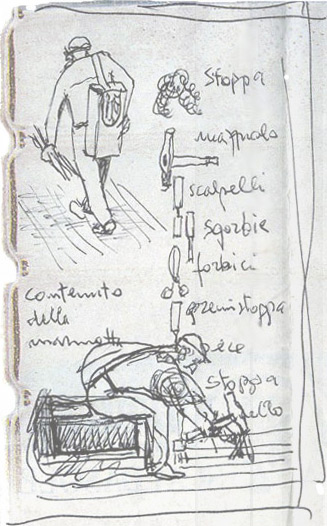 stoppa
mazzuolo
scalpelli
sgorbie
forbici
premistoppa
pece
stoppa
contenuto
della
marmotta